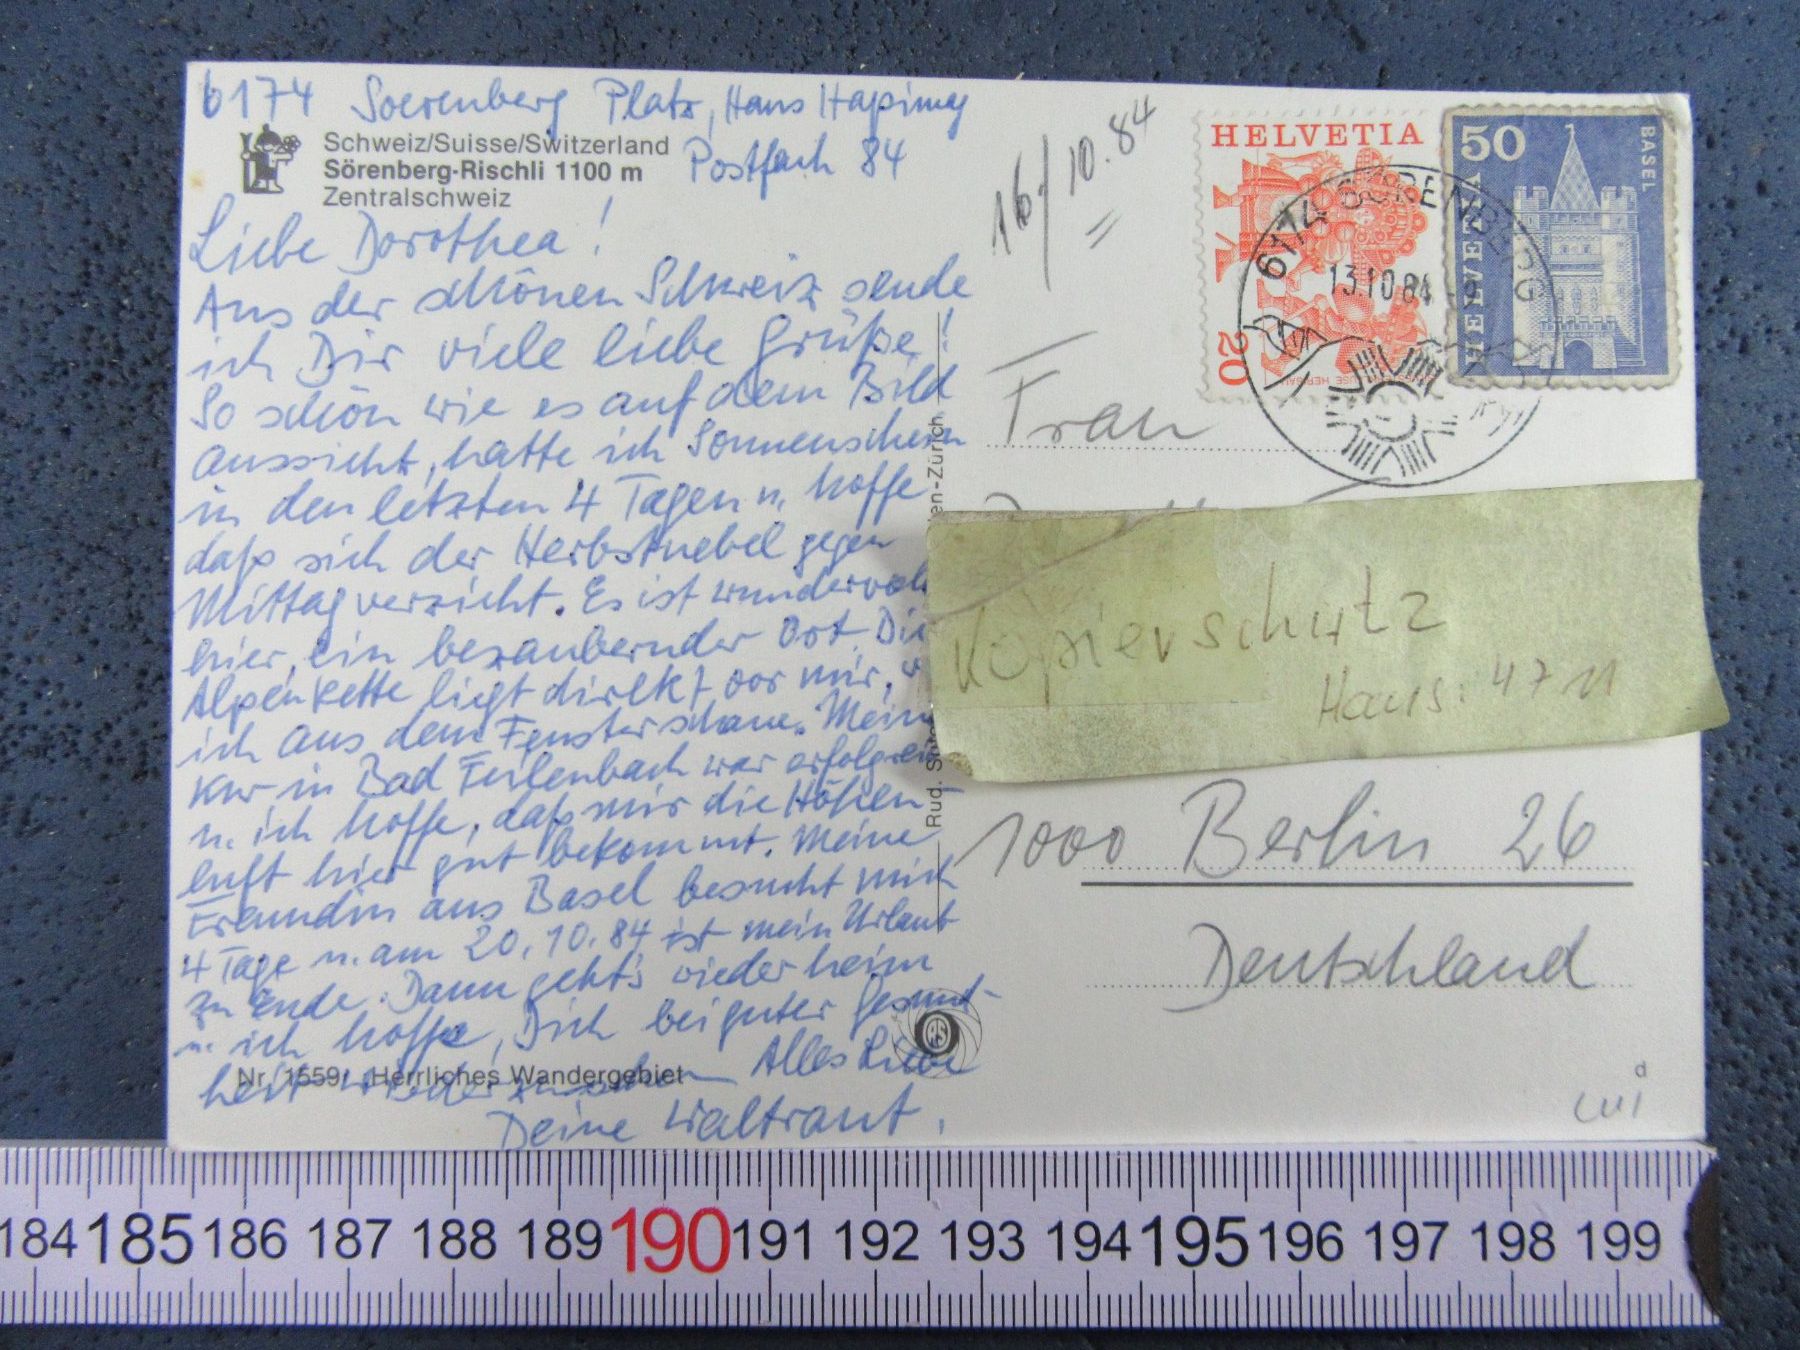 6174 Soerenberg Platz, Haus Hapimag
Postfach 84
Schweiz/Suisse/Switzerland
Sörenberg-Rischli 1100 m
Zentralschweiz
Liebe Dorothea!
Aus der schönen Schweiz sende
ich Dir viele liebe Grüße!
So schön wie es auf dem Bild
aussieht, hatte ich Sonnenschein
in den letzten 4 Tagen u. hoffe
daß sich der Herbstnebel gegen
Mittag verzieht. Es ist wundervoll
hier, ein bezaubernder Ort. Die
Alpenkette liegt direkt vor mir, w
ich aus dem Fenster schaue. Meine
Kur in Bad Feilenbach war erfolgreich
u. ich hoffe, daß mir die Höhen
luft hier gut bekommt. Meine
Freundin aus Basel besucht mich
4 Tage u. am 20.10.84 ist mein Urlaub
zu Ende. Dann geht's wieder heim
u. ich hoffe, Dich bei guter Gesund-
heit wieder zu sehen Alles Liebe
Deine Waltraut.
Nr. 1559 Herrliches Wandergebiet
Rud. Su
en-Zürich
RS
16/10.84
HELVETIA
20
50
BASEL
HELVETIA
6174 SÖRENBERG
13.10.84
Frau
Kopierschutz
Haus: 4711
1000 Berlin 26
Deutschland
d
184 185 186 187 188 189 190 191 192 193 194 195 196 197 198 199